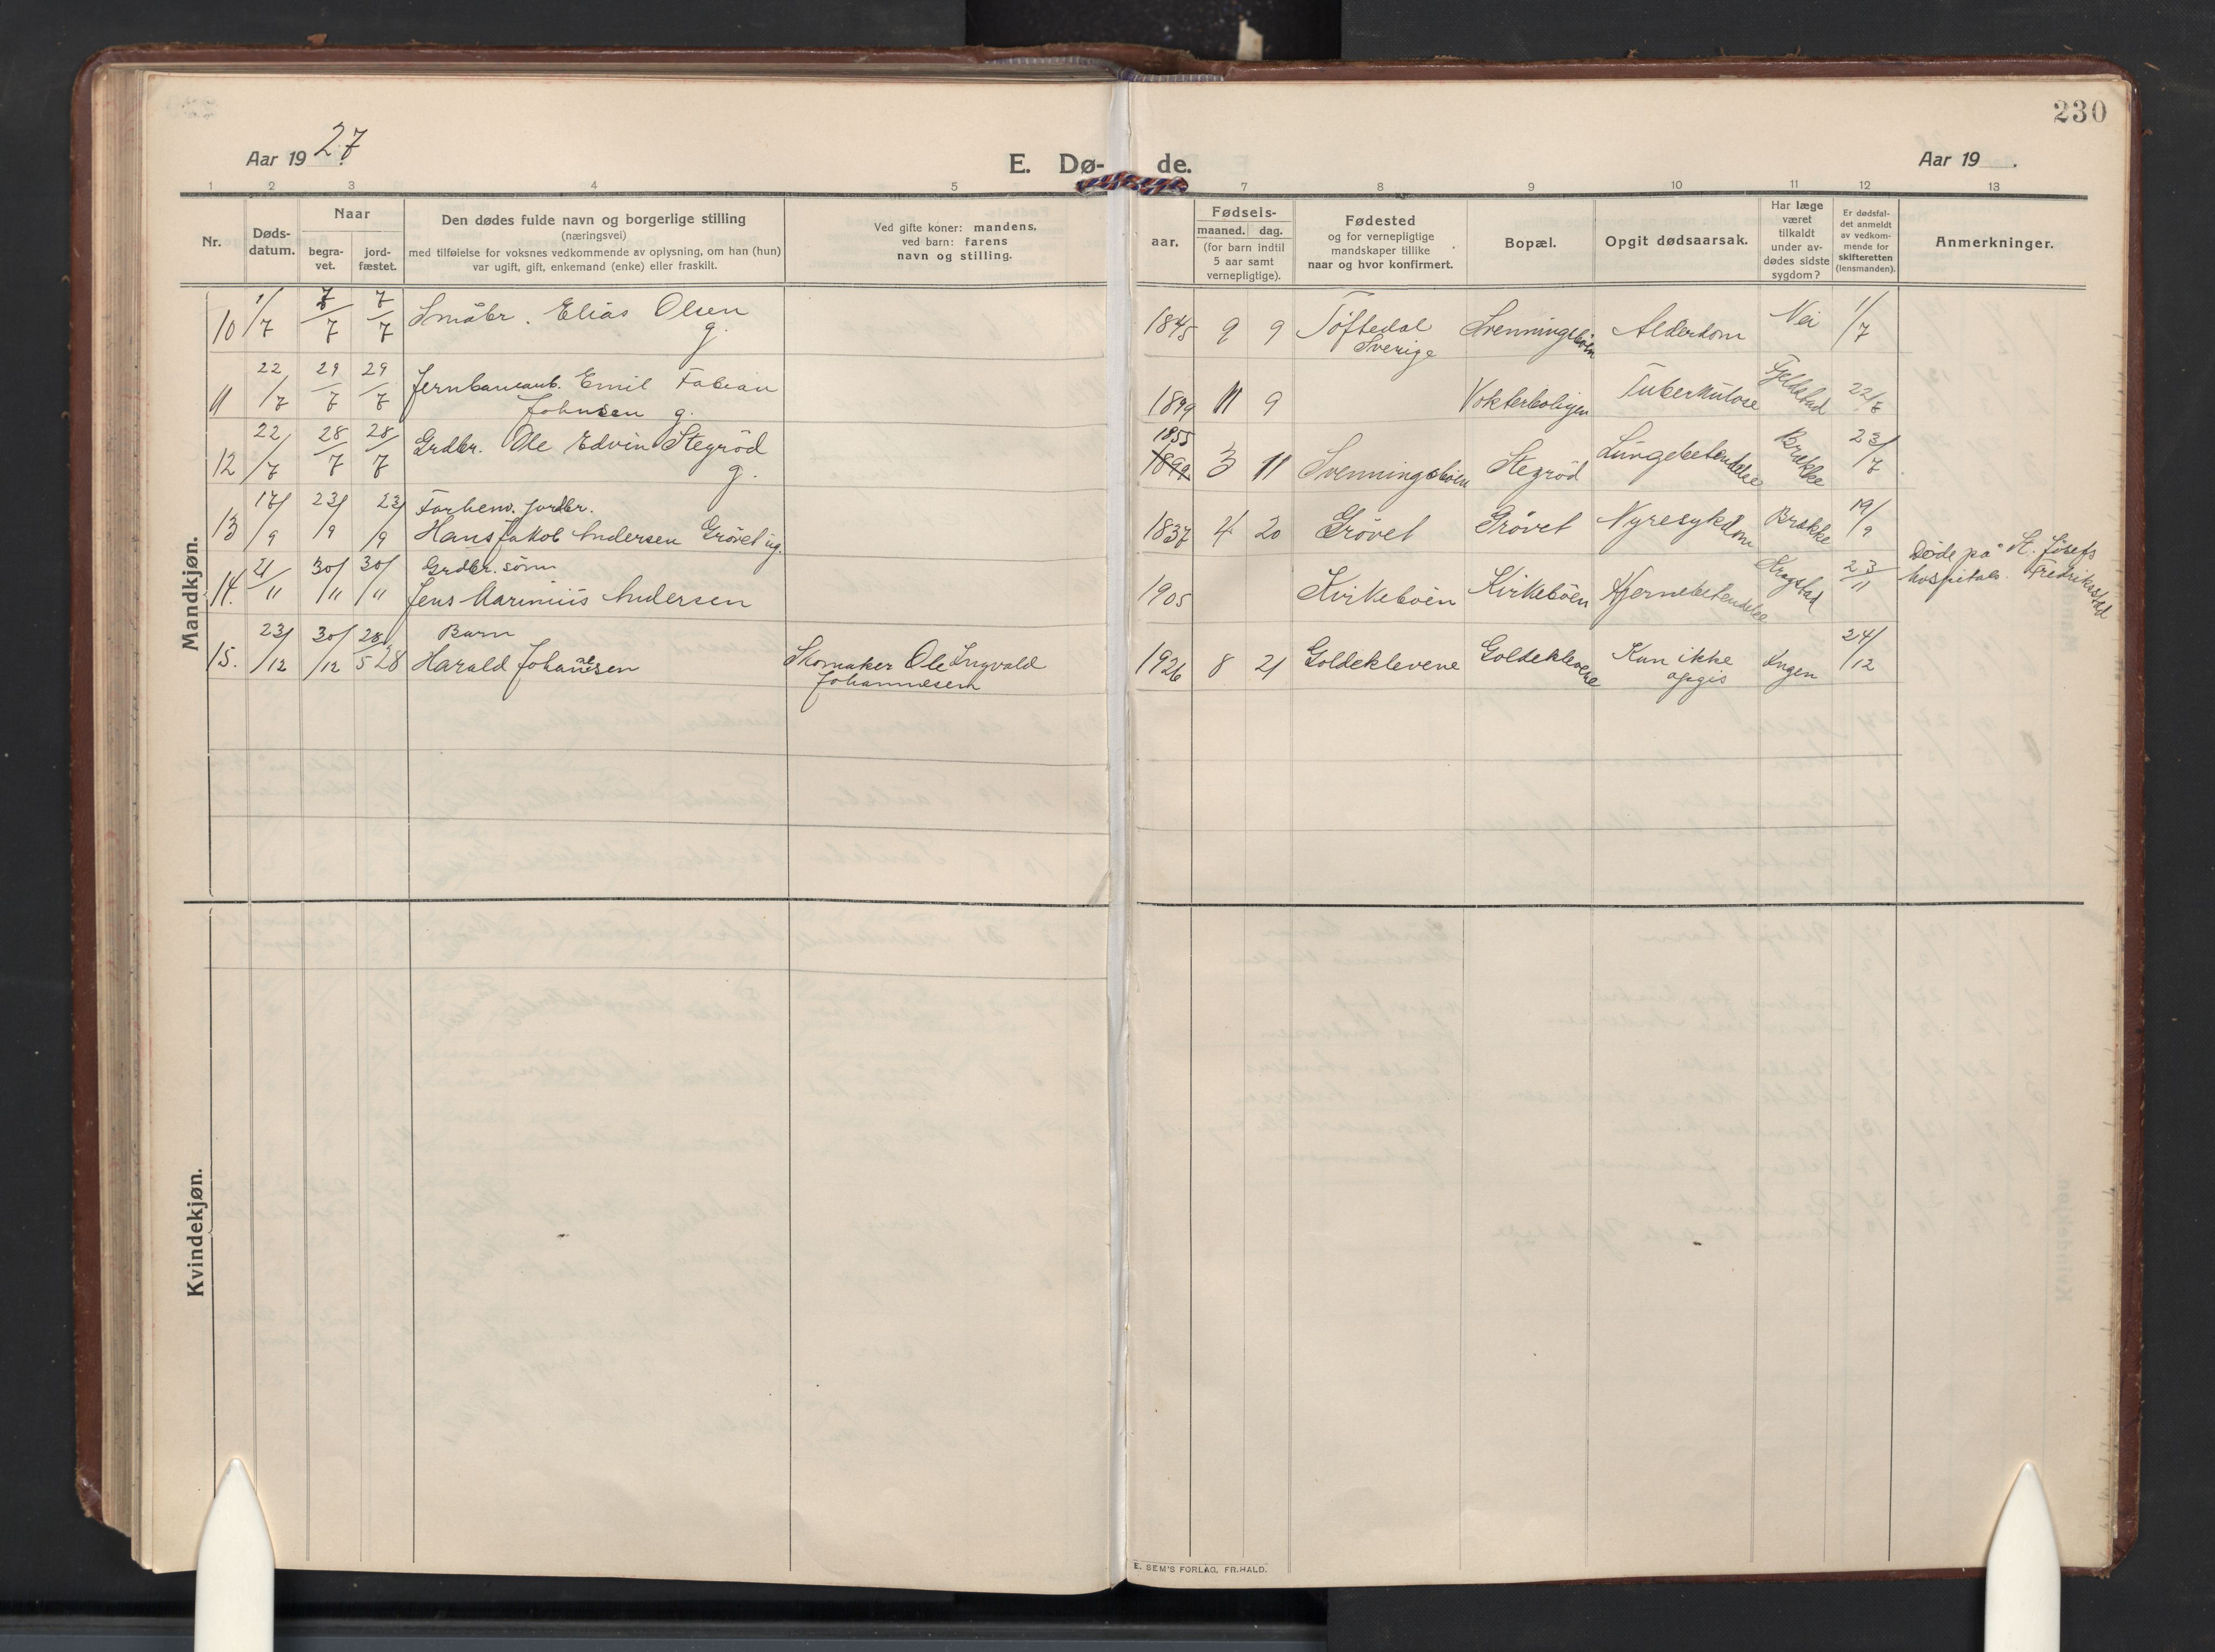 230
Aar 19 27
E. Dø- de.
Aar 19 .
1 2 3 4 5 7 8 9 10 11 12 13
Nr.
Døds-
datum.
Naar
begra-
vet.
jord-
fæstet.
Den dødes fulde navn og borgerlige stilling
(næringsvei)
med tilføielse for voksnes vedkommende av oplysning, om han (hun)
var ugift, gift, enkemand (enke) eller fraskilt.
Ved gifte koner: mandens,
ved barn: farens
navn og stilling.
aar.
Fødsels-
maaned. dag.
(for barn indtil
5 aar samt
vernepligtige).
Fødested
og for vernepligtige
mandskaper tillike
naar og hvor konfirmert.
Bopæl.
Opgit dødsaarsak.
Har læge
været
tilkaldt
under av-
dødes sidste
sygdom?
Er dødsfal-
det anmeldt
av vedkom-
mende for
skifteretten
(lensmanden).
Anmerkninger.
Mandkjøn.
10 1/7 7/7 7/7 Småbr. Elias Olsen
g.
1845 9 9 Töftedal
Sverige
Svenningsböen Alderdom Nei 1/7
11 22/7 29/7 29/7 Jernbanearb. Emil Fabian
Johnsen g.
1899 11 9 Vokterboligen Tuberkulose Fjeldstad 22/7
12 22/7 28/7 28/7 Grdbr. Ole Edvin Stegröd
g.
1855
1899 3 11 Svenningsböen Stegröd Lungebetendelse Brække 23/7
13 17/9 23/9 23/9 Forhenv. jordbr.
Hans Jakob Andersen Grövet ug.
1837 4 20 Grövet Grövet Nyresykdom Brække 19/9
14. 21/11 30/11 30/11 Grdbr. sönn
Jens Marinius Andersen
1905 Kirkeböen Kirkeböen Hjernebetendelse Krogstad 23/11
Döde på St. Josefs
hospital. Fredrikstad
15. 23/12 30/12 28/5 28 Barn
Harald Johannesen
Skomaker Ole Ingvald
Johannesen
1926 8 21 Goldeklevene Goldeklevene Kan ikke
opgis
Ingen 24/12
Kvindekjøn.
E. SEM'S FORLAG, FR.HALD.